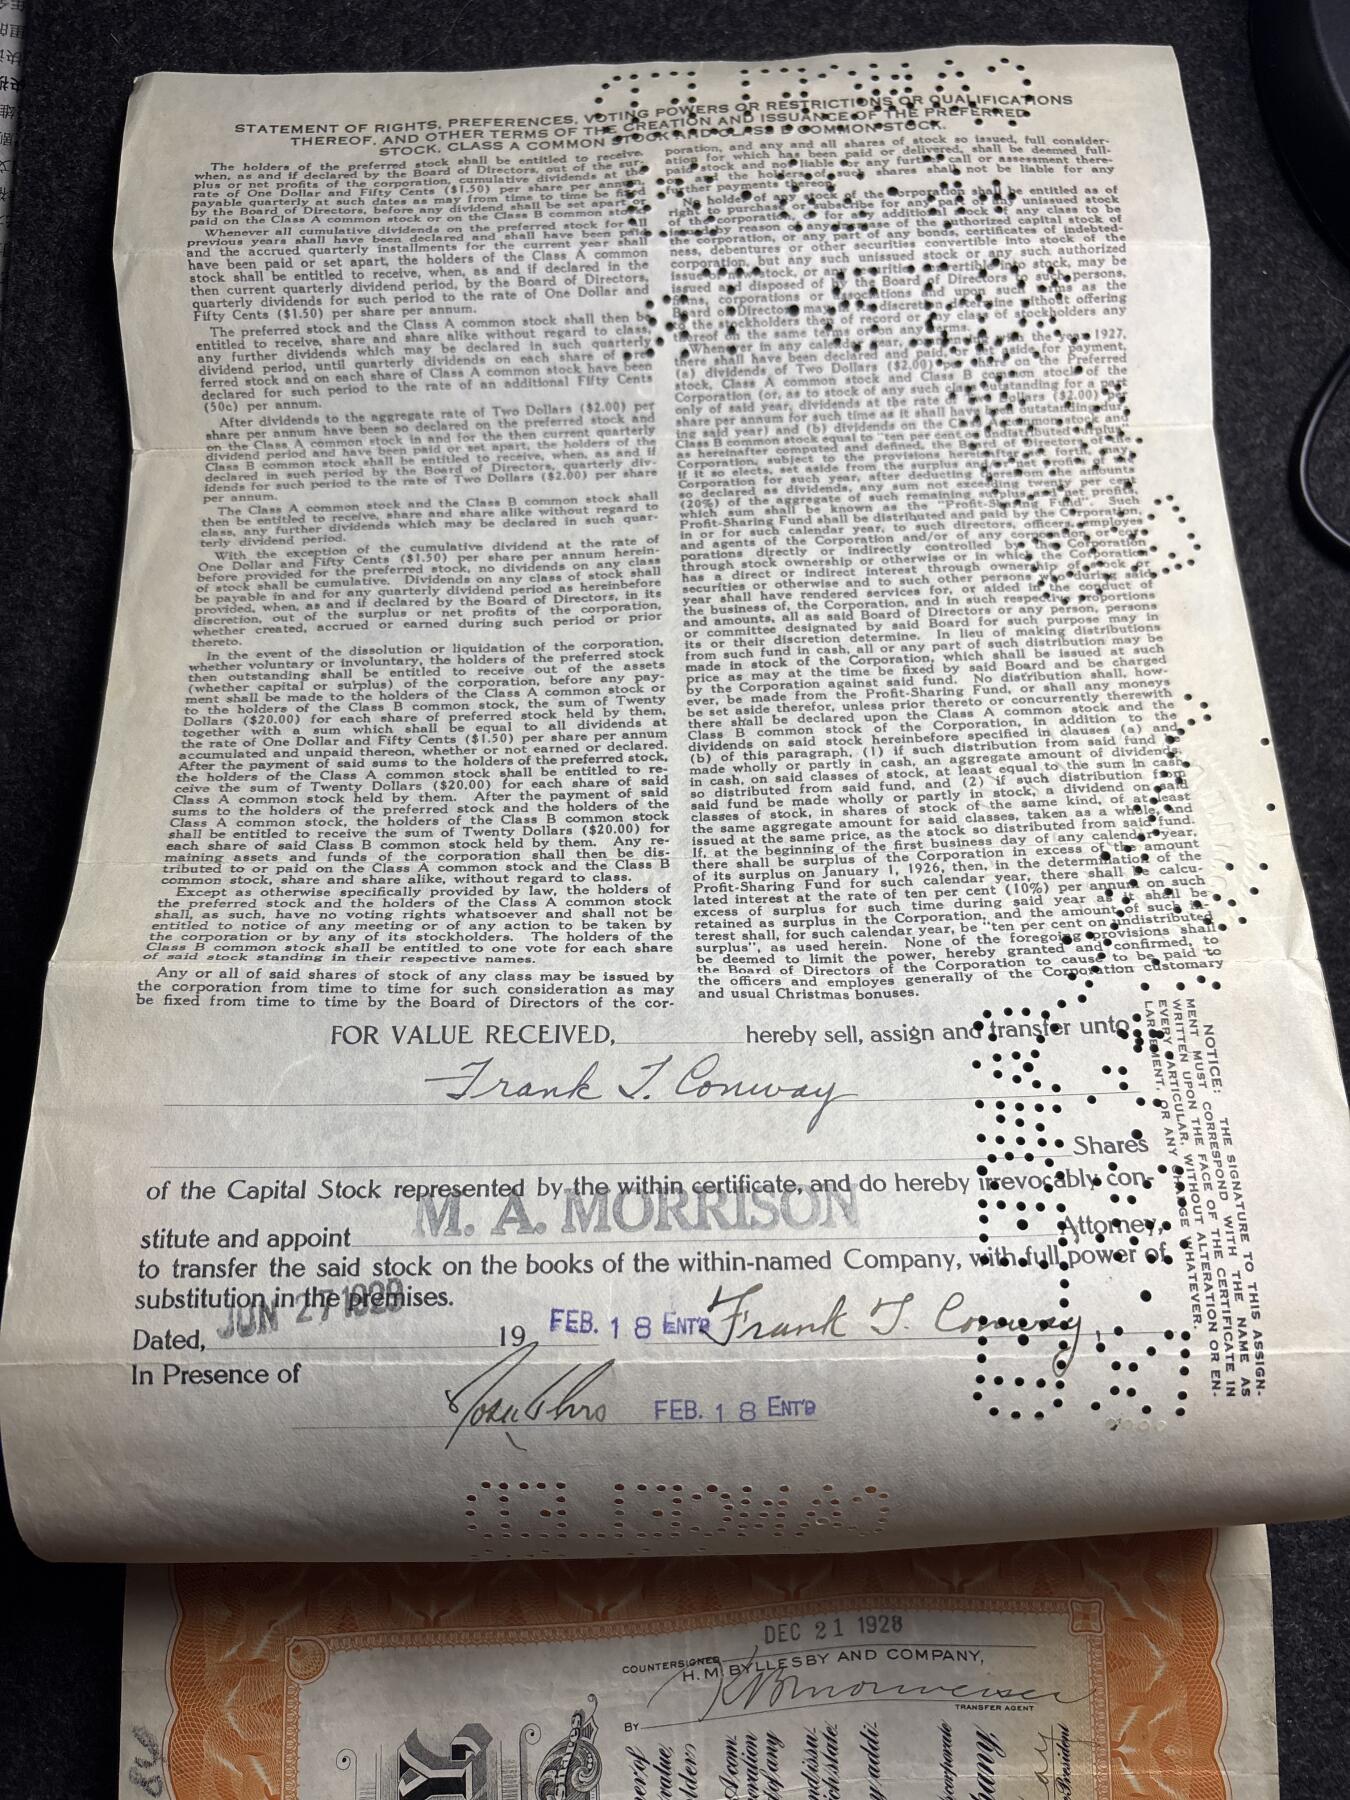 STATEMENT OF RIGHTS, PREFERENCES, VOTING POWERS OR RESTRICTIONS OR QUALIFICATIONS
THEREOF, AND OTHER TERMS OF THE CREATION AND ISSUANCE OF THE PREFERRED
STOCK, CLASS A COMMON STOCK AND CLASS B COMMON STOCK.
The holders of the preferred stock shall be entitled to receive,
when, as and if declared by the Board of Directors, out of the sur-
plus or net profits of the corporation, cumulative dividends at the
rate of One Dollar and Fifty Cents ($1.50) per share per annum,
payable quarterly at such dates as may from time to time be fixed
by the Board of Directors, before any dividend shall be set apart or
paid on the Class A common stock or on the Class B common stock.
Whenever all cumulative dividends on the preferred stock for all
previous years shall have been declared and shall have been paid
and the accrued quarterly installments for the current year shall
have been paid or set apart, the holders of the Class A common
stock shall be entitled to receive, when, as and if declared in the
then current quarterly dividend period, by the Board of Directors,
quarterly dividends for such period to the rate of One Dollar and
Fifty Cents ($1.50) per share per annum.
The preferred stock and the Class A common stock shall then be
entitled to receive, share and share alike without regard to class,
any further dividends which may be declared in such quarterly
dividend period, until quarterly dividends on each share of pre-
ferred stock and on each share of Class A common stock have been
declared for such period to the rate of an additional Fifty Cents
(50c) per annum.
After dividends to the aggregate rate of Two Dollars ($2.00) per
share per annum have been so declared on the preferred stock and
on the Class A common stock in and for the then current quarterly
dividend period and have been paid or set apart, the holders of the
Class B common stock shall be entitled to receive, when, as and if
declared in such period by the Board of Directors, quarterly div-
idends for such period to the rate of Two Dollars ($2.00) per share
per annum.
The Class A common stock and the Class B common stock shall
then be entitled to receive, share and share alike without regard to
class, any further dividends which may be declared in such quar-
terly dividend period.
With the exception of the cumulative dividend at the rate of
One Dollar and Fifty Cents ($1.50) per share per annum herein-
before provided for the preferred stock, no dividends on any class
of stock shall be cumulative. Dividends on any class of stock shall
be payable in and for any quarterly dividend period as hereinbefore
provided, when, as and if declared by the Board of Directors, in its
discretion, out of the surplus or net profits of the corporation,
whether created, accrued or earned during such period or prior
thereto.
In the event of the dissolution or liquidation of the corporation,
whether voluntary or involuntary, the holders of the preferred stock
then outstanding shall be entitled to receive out of the assets
(whether capital or surplus) of the corporation, before any pay-
ment shall be made to the holders of the Class A common stock or
to the holders of the Class B common stock, the sum of Twenty
Dollars ($20.00) for each share of preferred stock held by them,
together with a sum which shall be equal to all dividends at
the rate of One Dollar and Fifty Cents ($1.50) per share per annum
accumulated and unpaid thereon, whether or not earned or declared.
After the payment of said sums to the holders of the preferred stock,
the holders of the Class A common stock shall be entitled to re-
ceive the sum of Twenty Dollars ($20.00) for each share of said
Class A common stock held by them. After the payment of said
sums to the holders of the preferred stock and the holders of the
Class A common stock, the holders of the Class B common stock
shall be entitled to receive the sum of Twenty Dollars ($20.00) for
each share of said Class B common stock held by them. Any re-
maining assets and funds of the corporation shall then be dis-
tributed to or paid on the Class A common stock and the Class B
common stock, share and share alike, without regard to class.
Except as otherwise specifically provided by law, the holders of
the preferred stock and the holders of the Class A common stock
shall, as such, have no voting rights whatsoever and shall not be
entitled to notice of any meeting or of any action to be taken by
the corporation or by any of its stockholders. The holders of the
Class B common stock shall be entitled to one vote for each share
of said stock standing in their respective names.
Any or all of said shares of stock of any class may be issued by
the corporation from time to time for such consideration as may
be fixed from time to time by the Board of Directors of the cor-
poration, and any and all shares of stock so issued, full consider-
ation for which has been paid or delivered, shall be deemed full-
paid stock and not liable for any further call or assessment there-
on, and the holders of such shares shall not be liable for any
further payments thereon.
No holder of any stock of the corporation shall be entitled as of
right to purchase or subscribe for any part of any unissued stock
of the corporation, or for any additional stock of any class to be
issued by reason of any increase of the authorized capital stock of
the corporation, or any part of any bonds, certificates of indebted-
ness, debentures or other securities convertible into stock of the
corporation, but any such unissued stock or any such authorized
issue of new stock, or any securities convertible into stock, may be
issued and disposed of by the Board of Directors to such persons,
firms, corporations or associations and upon such terms as the
Board of Directors may in its discretion determine without offering
to the stockholders then of record or any class of stockholders any
thereof on the same terms or on any terms.
Whenever in any calendar year, commencing with the year 1927,
there shall have been declared and paid, or set aside for payment,
(a) dividends of Two Dollars ($2.00) per share on the Preferred
stock, Class A common stock and Class B common stock of the
Corporation (or, as to stock of any such class outstanding for a part
only of said year, dividends at the rate of Two Dollars ($2.00) per
share per annum for such time as it shall have been outstanding dur-
ing said year) and (b) dividends on the Class A common stock and
Class B common stock equal to "ten per cent on undistributed surplus,"
as hereinafter computed and defined, the Board of Directors of the
Corporation, subject to the provisions hereinafter set forth, may,
if it so elects, set aside from the surplus and/or net profits of the
Corporation for such year, after deducting therefrom the amounts
so declared as dividends, any sum not exceeding twenty per cent
(20%) of the aggregate of such remaining surplus and net profits,
which sum shall be known as the "Profit-Sharing Fund". Such
Profit-Sharing Fund shall be distributed and paid by the Corporation,
in or for such calendar year, to such directors, officers, employes
and agents of the Corporation and/or of any corporation or cor-
porations directly or indirectly controlled by the Corporation
through stock ownership or otherwise or in which the Corporation
has a direct or indirect interest through ownership of stock or
securities or otherwise and to such other persons who during said
year shall have rendered services for, or aided in the conduct of
the business of, the Corporation, and in such respective proportions
and amounts, all as said Board of Directors or any person, persons
or committee designated by said Board for such purpose may in
its or their discretion determine. In lieu of making distributions
from such fund in cash, all or any part of such distribution may be
made in stock of the Corporation, which shall be issued at such
price as may at the time be fixed by said Board and be charged
by the Corporation against said fund. No distribution shall, how-
ever, be made from the Profit-Sharing Fund, or shall any moneys
be set aside therefor, unless prior thereto or concurrently therewith
there shall be declared upon the Class A common stock and the
Class B common stock of the Corporation, in addition to the
dividends on said stock hereinbefore specified in clauses (a) and
(b) of this paragraph, (1) if such distribution from said fund be
made wholly or partly in cash, an aggregate amount of dividends,
in cash, on said classes of stock, at least equal to the sum in cash
so distributed from said fund, and (2) if such distribution from
said fund be made wholly or partly in stock, a dividend on said
classes of stock, in shares of stock of the same kind, of at least
the same aggregate amount for said classes, taken as a whole, and
issued at the same price, as the stock so distributed from said fund.
If, at the beginning of the first business day of any calendar year,
there shall be surplus of the Corporation in excess of the amount
of its surplus on January 1, 1926, then, in the determination of the
Profit-Sharing Fund for such calendar year, there shall be calcu-
lated interest at the rate of ten per cent (10%) per annum on such
excess of surplus for such time during said year as it shall be
retained as surplus in the Corporation, and the amount of such in-
terest shall, for such calendar year, be "ten per cent on undistributed
surplus", as used herein. None of the foregoing provisions shall
be deemed to limit the power, hereby granted and confirmed, to
the Board of Directors of the Corporation to cause to be paid to
the officers and employes generally of the Corporation customary
and usual Christmas bonuses.
FOR VALUE RECEIVED, hereby sell, assign and transfer unto
Frank T. Conway
Shares
of the Capital Stock represented by the within certificate, and do hereby irrevocably con-
M. A. MORRISON
stitute and appoint Attorney,
to transfer the said stock on the books of the within-named Company, with full power of
substitution in the premises.
JUN 27 1929
Dated, 19 FEB. 18 ENT'D Frank T. Conway
In Presence of
FEB. 18 ENT'D
NOTICE: THE SIGNATURE TO THIS ASSIGN-
MENT MUST CORRESPOND WITH THE NAME AS
WRITTEN UPON THE FACE OF THE CERTIFICATE IN
EVERY PARTICULAR, WITHOUT ALTERATION OR EN-
LARGEMENT, OR ANY CHANGE WHATEVER.
CANCELLED
DEC 21 1928
COUNTERSIGNED
H. M. BYLLESBY AND COMPANY,
BY
TRANSFER AGENT
President